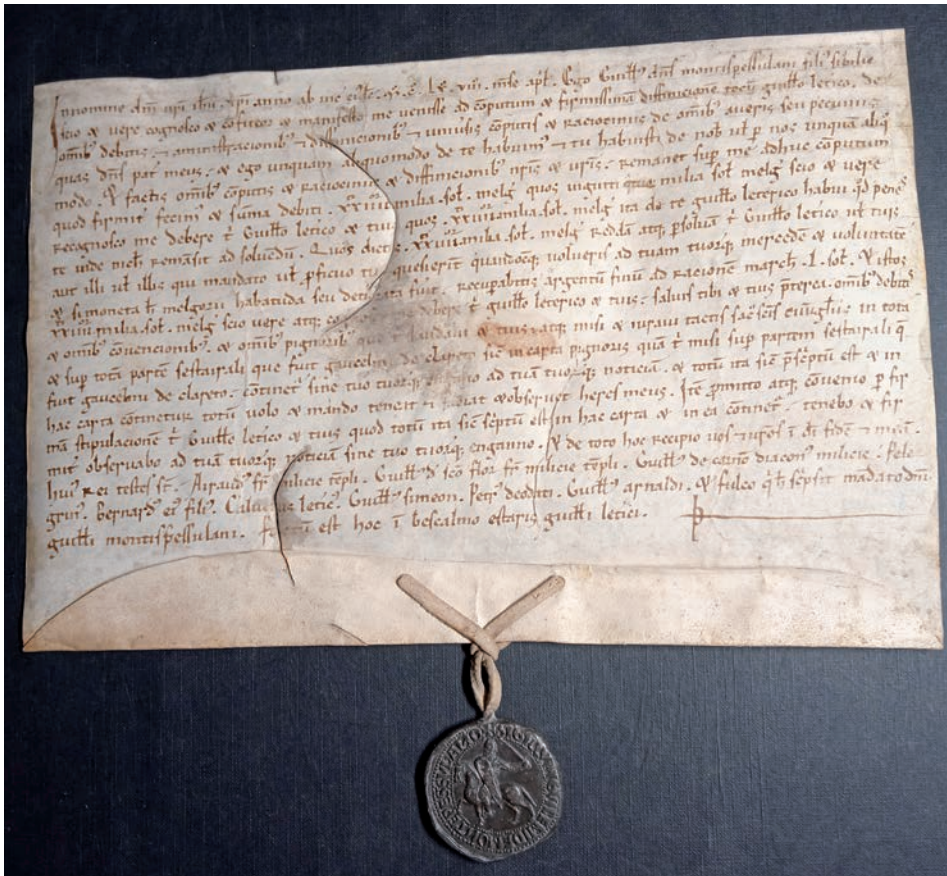 Innomine dni nri ihu xpi anno ab inc eiusde. M. C. L. viii. mse apl. Ego Guills dns montispessulani fili sibilie
scio & vere cognosco & confiteor & manifesto me venisse ad coputum & firmissima diffinicione tecu guillo letico, de
omib debitis & aministracionib & diffinicionib & univsis coputis & racociniis de omib averis seu pecuniis
quas dns pat meus, & ego unquam aliquomodo de te habuim & tu habuisti de nob ul p nos unqua aliq
modo. Et factis omib coputis & racociniis & diffinicionib nris & vris. remanet sup me adhuc coputum
quod firmit fecim & suma debiti. xxiiii milia. sol. melg quos viginti milia sol melg scio & vere
recognosco me debere t Guillo letico & tuis quos. xxiiii milia. sol. melg ita de te guillo leterico habui qd penes
te inde nich remasit ad solvedu. Quos dictos xxiiii milia. sol. melg redda atq psolva t Guillo letico ul tuis
aut illi ul illis qui mandato ul pficuo tu quesierit quandocq volueris ad tuam tuorq mercedem & voluntate
& si moneta h melgorii habatuda seu det ita fuit. recupabitis argentu finu ad racione march. L. sol. Et istos
xxiiii milia. sol. melg scio vere atq co debere t guillo leterico & tuis. salvis tibi & tuis pterea. omib debitis
& omib covencionib. & omib pignorib que t laudavi & tuis. atq misi & iuravi tactis sacscis euvgliis in tota
& sup tota parte sestairali que fuit gaucelmi de clapeto sic in carta pignoris qua t misi sup partem sestairali q
fuit gaucelmi de clapeto. continet sine tuo tuorq enganno ad tua tuorq noticia. & totu ita sic pseptu est & in
hac carta continetur totu volo & mando teneat & faciat & observet heres meus. Ite pmitto atq convenio p fir
ma stipulacione t Guillo letico & tuis quod totu ita sic scptu est in hac carta & in ea continet. tenebo & fir
mit observabo ad tua tuorq noticia sine tuo tuorq enganno. Et de toto hoc recipio vos & vros i di fide & mea.
hui rei testes st. Airaud fr milicie tepli. Guill d sco flor fr milicie tepli. Guill de carno diacon milicie. Pele
grin. Bernard ei fili. Calverus letic. Guill simeon. Petr deodati. Guill arnaldi. & fulco q h scpsit madato dni
guilli montispessulani. factu est hoc i bescalmo estaris guilli letici.